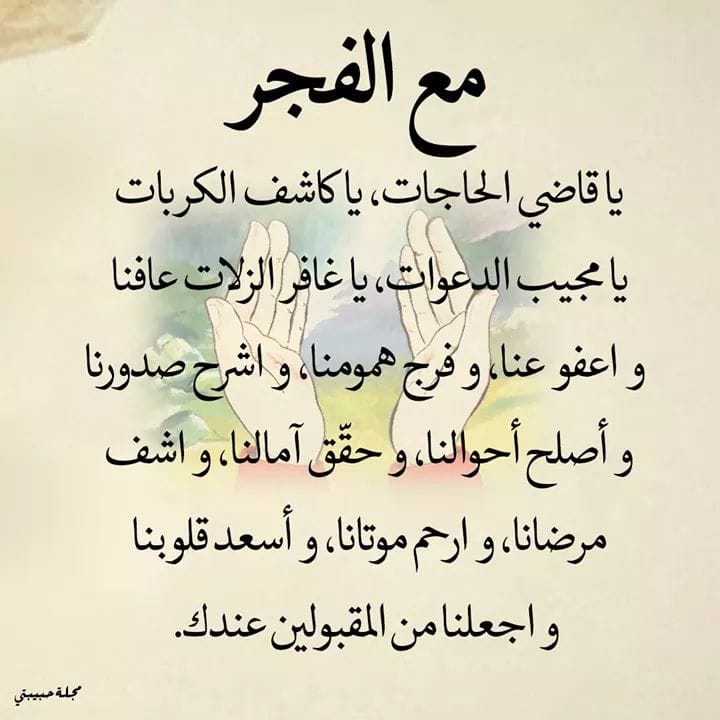 مع الفجر
يا قاضي الحاجات، يا كاشف الكربات
يا مجيب الدعوات، يا غافر الزلات عافنا
و اعفو عنا، و فرج همومنا، و اشرح صدورنا
و أصلح أحوالنا، و حقّق آمالنا، و اشف
مرضانا، و ارحم موتانا، و أسعد قلوبنا
و اجعلنا من المقبولين عندك.
مجلة حبيبتي